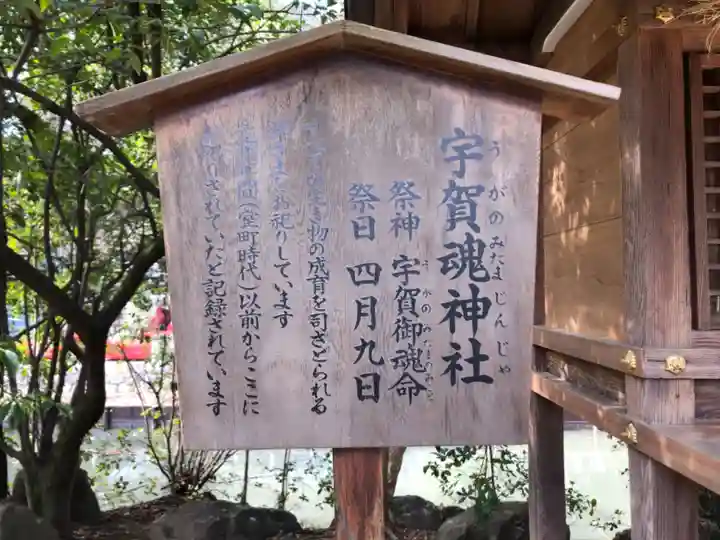 宇賀魂神社
うがのみたまじんじゃ
祭神 宇賀御魂命
うがのみたまのみこと
祭日 四月九日
生き物の成育を司ざどられる
お祀りしています
(室町時代)以前からここに
お祀りされていたと記録されています